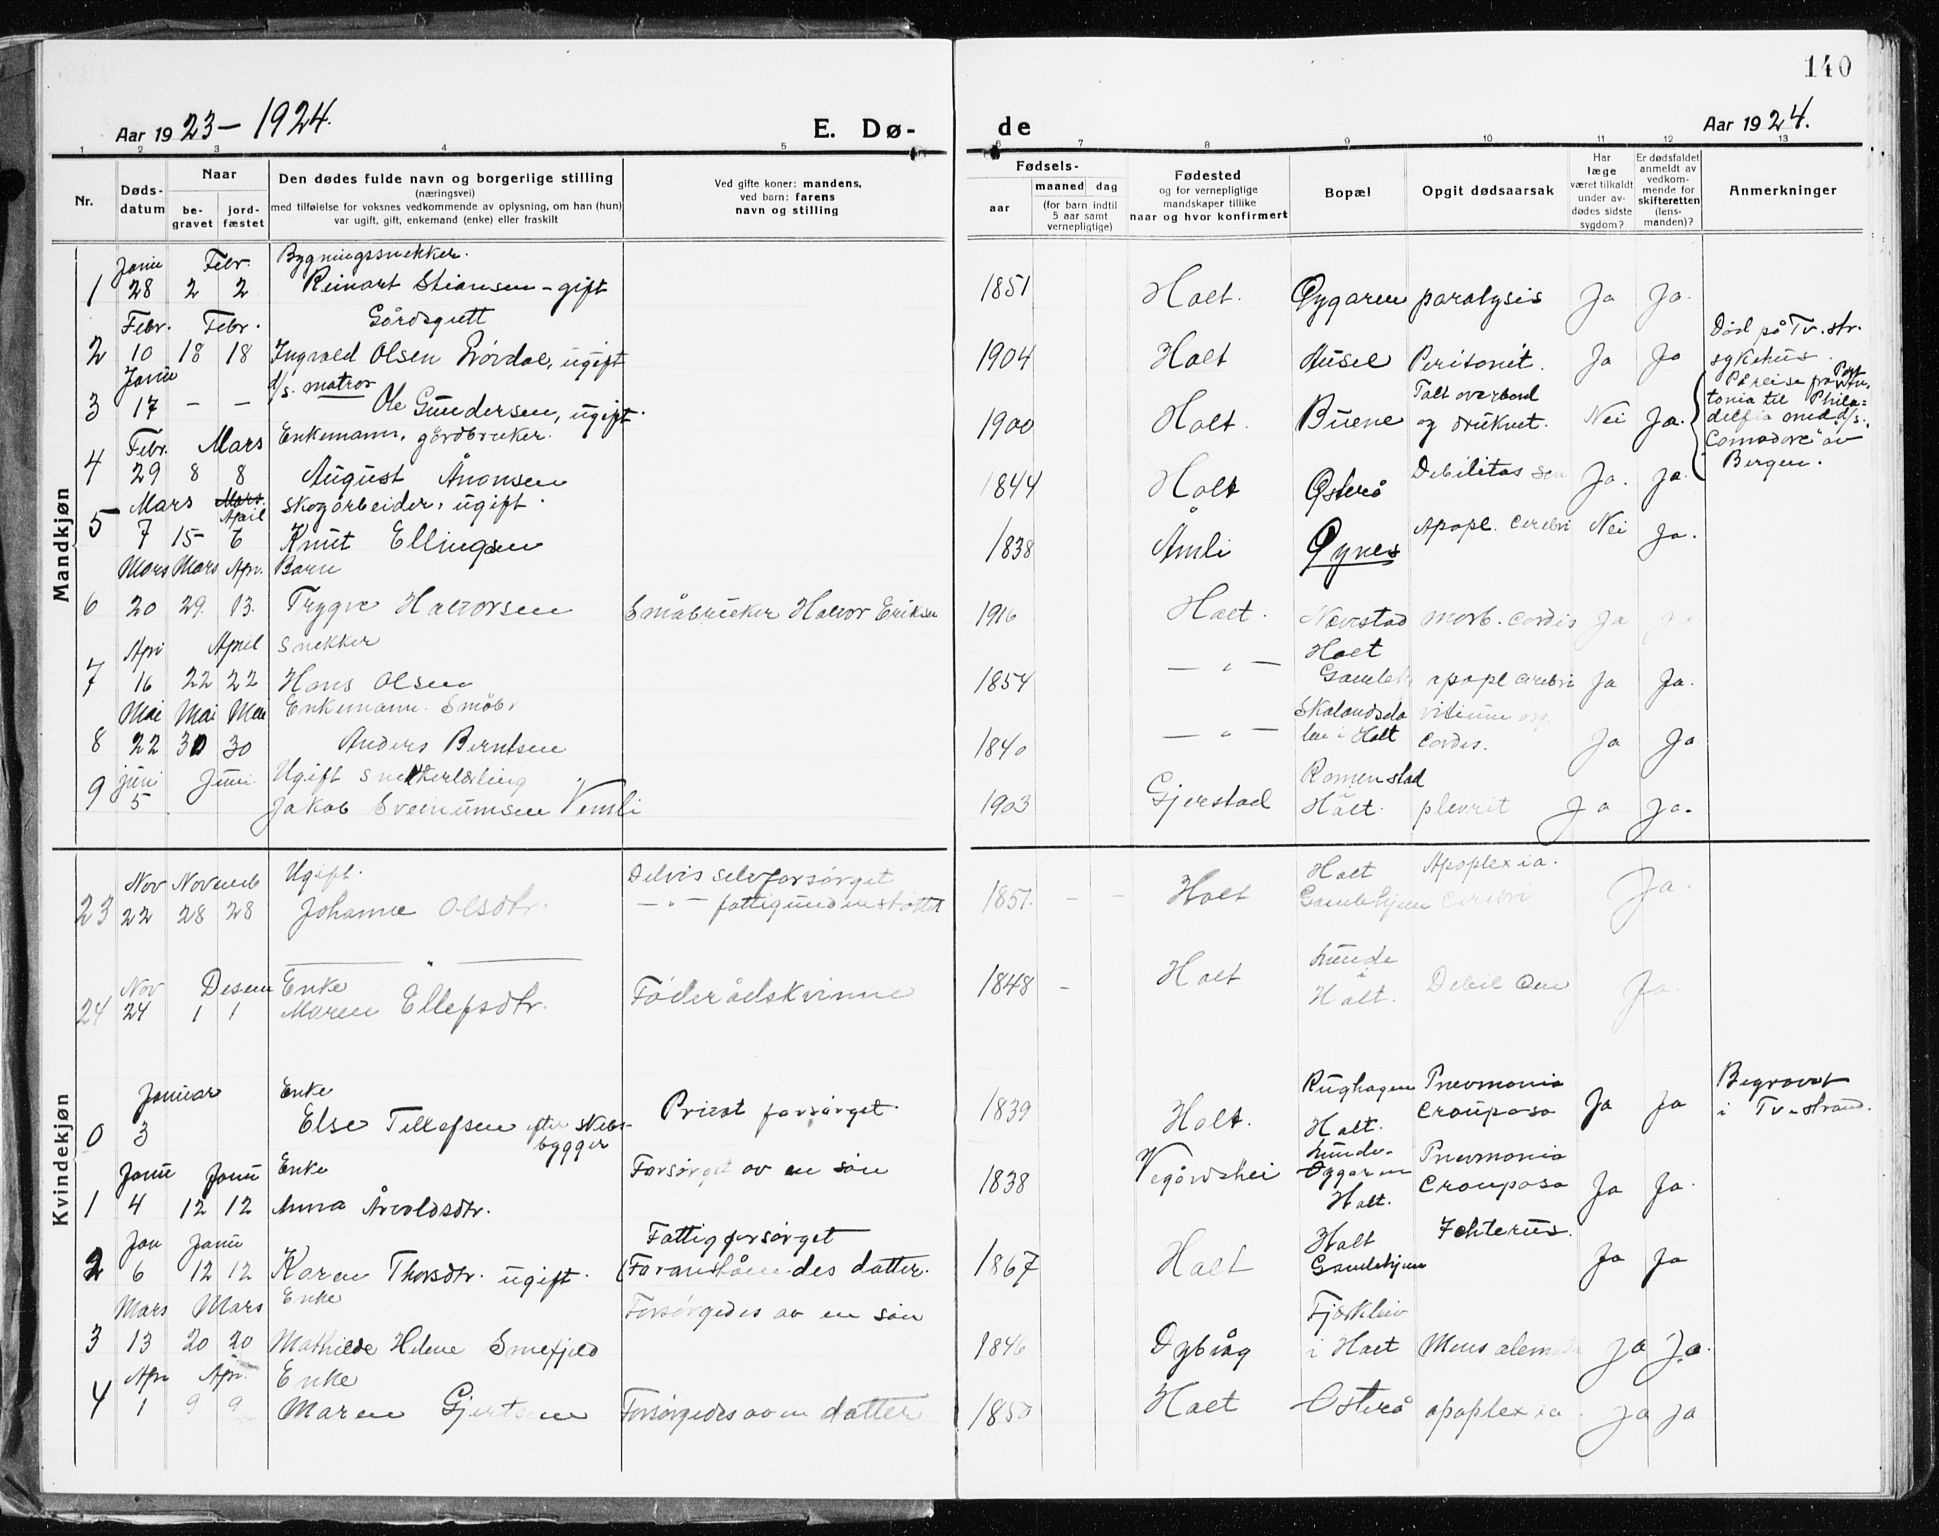 140
Aar 1923 – 1924.
E. Dø-
de
Aar 1924.
1 2 3 4 5 6 7 8 9 10 11 12 13
Nr.
Døds-
datum
Naar
be-
gravet
jord-
fæstet
Den dødes fulde navn og borgerlige stilling
(næringsvei)
med tilføielse for voksnes vedkommende av oplysning, om han (hun)
var ugift, gift, enkemand (enke) eller fraskilt
Ved gifte koner: mandens,
ved barn: farens
navn og stilling
Fødsels-
aar
maaned
dag
(for barn indtil
5 aar samt
vernepligtige)
Fødested
og for vernepligtige
mandskaper tillike
naar og hvor konfirmert
Bopæl
Opgit dødsaarsak
Har
læge
været tilkaldt
under av-
dødes sidste
sygdom?
Er dødsfaldet
anmeldt av
vedkom-
mende for
skifteretten
(lens-
manden)?
Anmerkninger
Mandkjøn
Janu Febr. Bygningssnekker.
1 28 2 2 Reinart Stiansen – gift 1851 Holt. paralysis Ja Ja.
Febr. Febr. Gårdsgutt
2 10 18 18 Ingvald Olsen Lövdal, ugift 1904 Holt Husel Peritonit. Ja Ja
Død på Tv.str.
sykehus.
Janu d/s. matros
3 17 – – Ole Gundersen, ugift. 1900 Holt. Buene Falt overbord
og druknet. Nei Ja.
På reise fra Port
tonia til Phila-
delfia med d/s.
"Comodore" av
Bergen.
Febr. Mars Enkemann, gårdbruker.
4 29 8 8 August Ånonsen 1844 Holt Østerå Debilitas sen Ja. Ja.
Mars Mars April skogarbeider, ugift.
5 7 15 6 Knut Ellingsen 1838 Åmli Øynes Apopl. cerebri Nei Ja.
Mars Mars Apr. Barn
6 20 29. 13. Trygve Halvorsen Småbruker Halvor Eriksen 1916 Holt. Nævestad morb. cordis Ja Ja
Apr April Snekker
7 16 22 22 Hans Olsen 1854 – " – Holt
Gamleh apopl cerebri Ja Ja.
Mai Mai Mai Enkemann. Småbr
8 22 30 30 Anders Berntsen 1840 – " – Skalandsda
len i Holt vitium org
cordis. Ja Ja
juni Juni. Ugift snekkerlærling
9 5 Jakob Sveinumsen Vemli 1903 Gjerstad Romenstad
Holt. plevrit Ja Ja.
Kvindekjøn
Nov Novemb Ugift. Delvis selvforsørget
23 22 28 28 Johanne Olsdtr. – " – fattigunderstøttet 1851. – – Holt Holt
Gamlehjem Apoplexia.
cerebri Ja.
Nov Desem Enke
24 24 1 1 Maren Ellefsdtr. Föderådskvinne 1848 – Holt Lunde
i
Holt. Debil sen Ja.
Januar Enke
0 3 Else Tellefsen efter skibs-
bygger Privat forsørget. 1839 Holt. Rughagen
Holt. Pnevmonia
Crouposa Ja Ja Begravet
i Tv.strand.
Janu Janu Enke
1 4 12 12 Anna Årvoldsdtr. Forsørget av en sön 1838 Vegårdshei Lunde-
Holt. Pnevmonia
Crouposa Ja Ja.
Jan Janu Fattigforsørget
2 6 12 12 Karen Thorsdtr. ugift. (Foranståendes datter. 1867 Holt Holt
Gamlehjem Ichterus. Ja Ja
Mars Mars Enke
3 13 20 20 Mathilde Helene Smefjeld Forsørgedes av en sön 1846 Dybvåg
i Holt Ja Ja.
Apr Apr. Enke
4 1 9 9 Maren Gjertsen Forsørgedes av en datter 1850 Holt Østerå apoplexia. Ja Ja